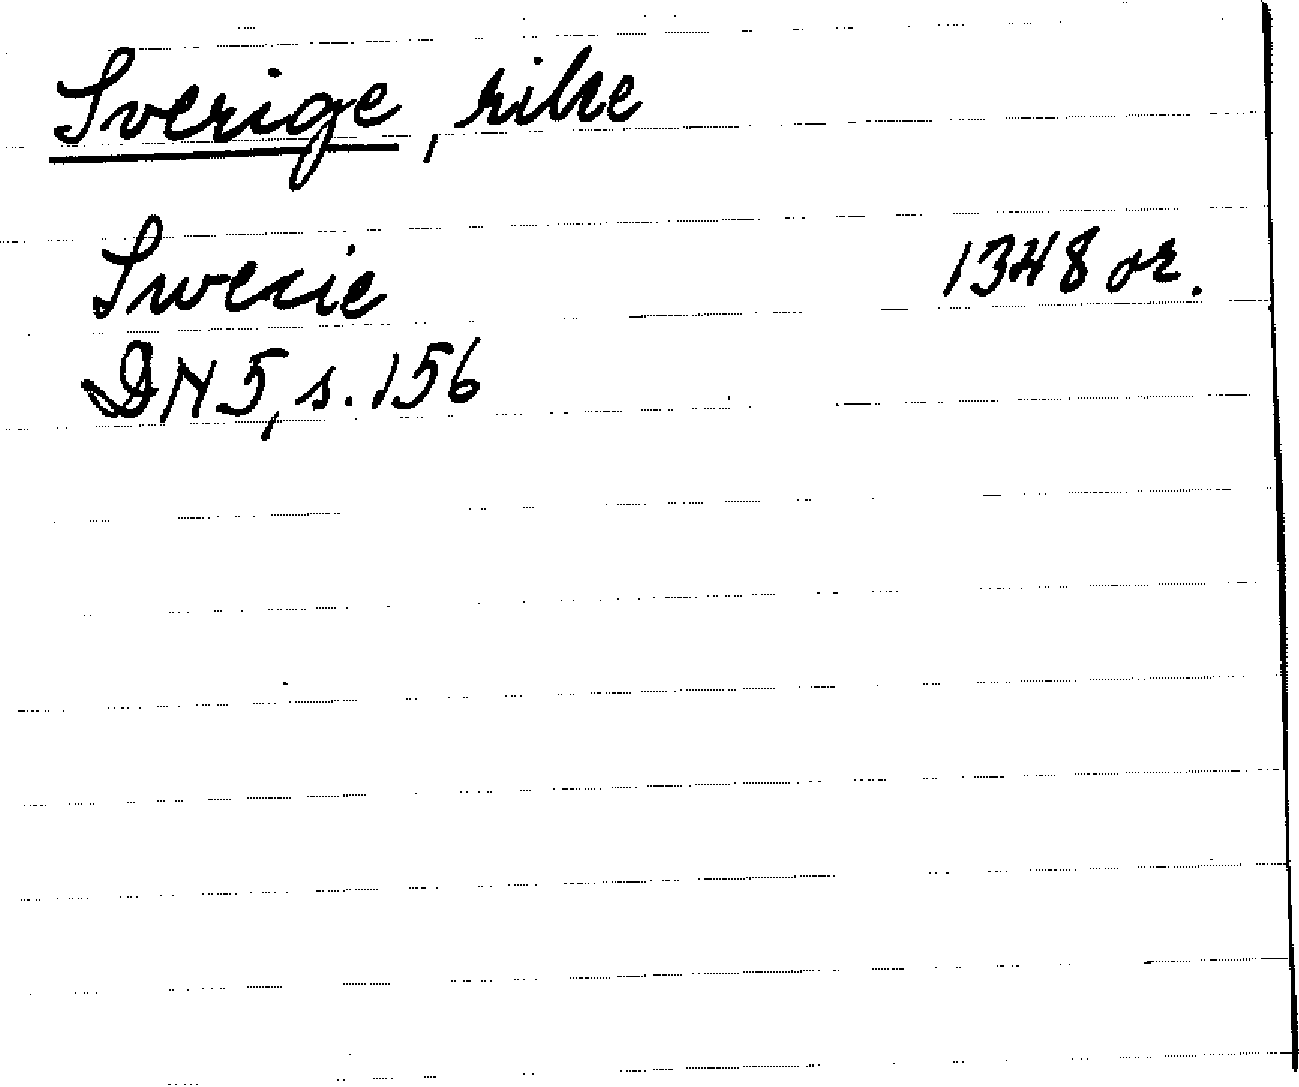 Sverige, rike
Swecie 1348 or.
DN 5, s. 156